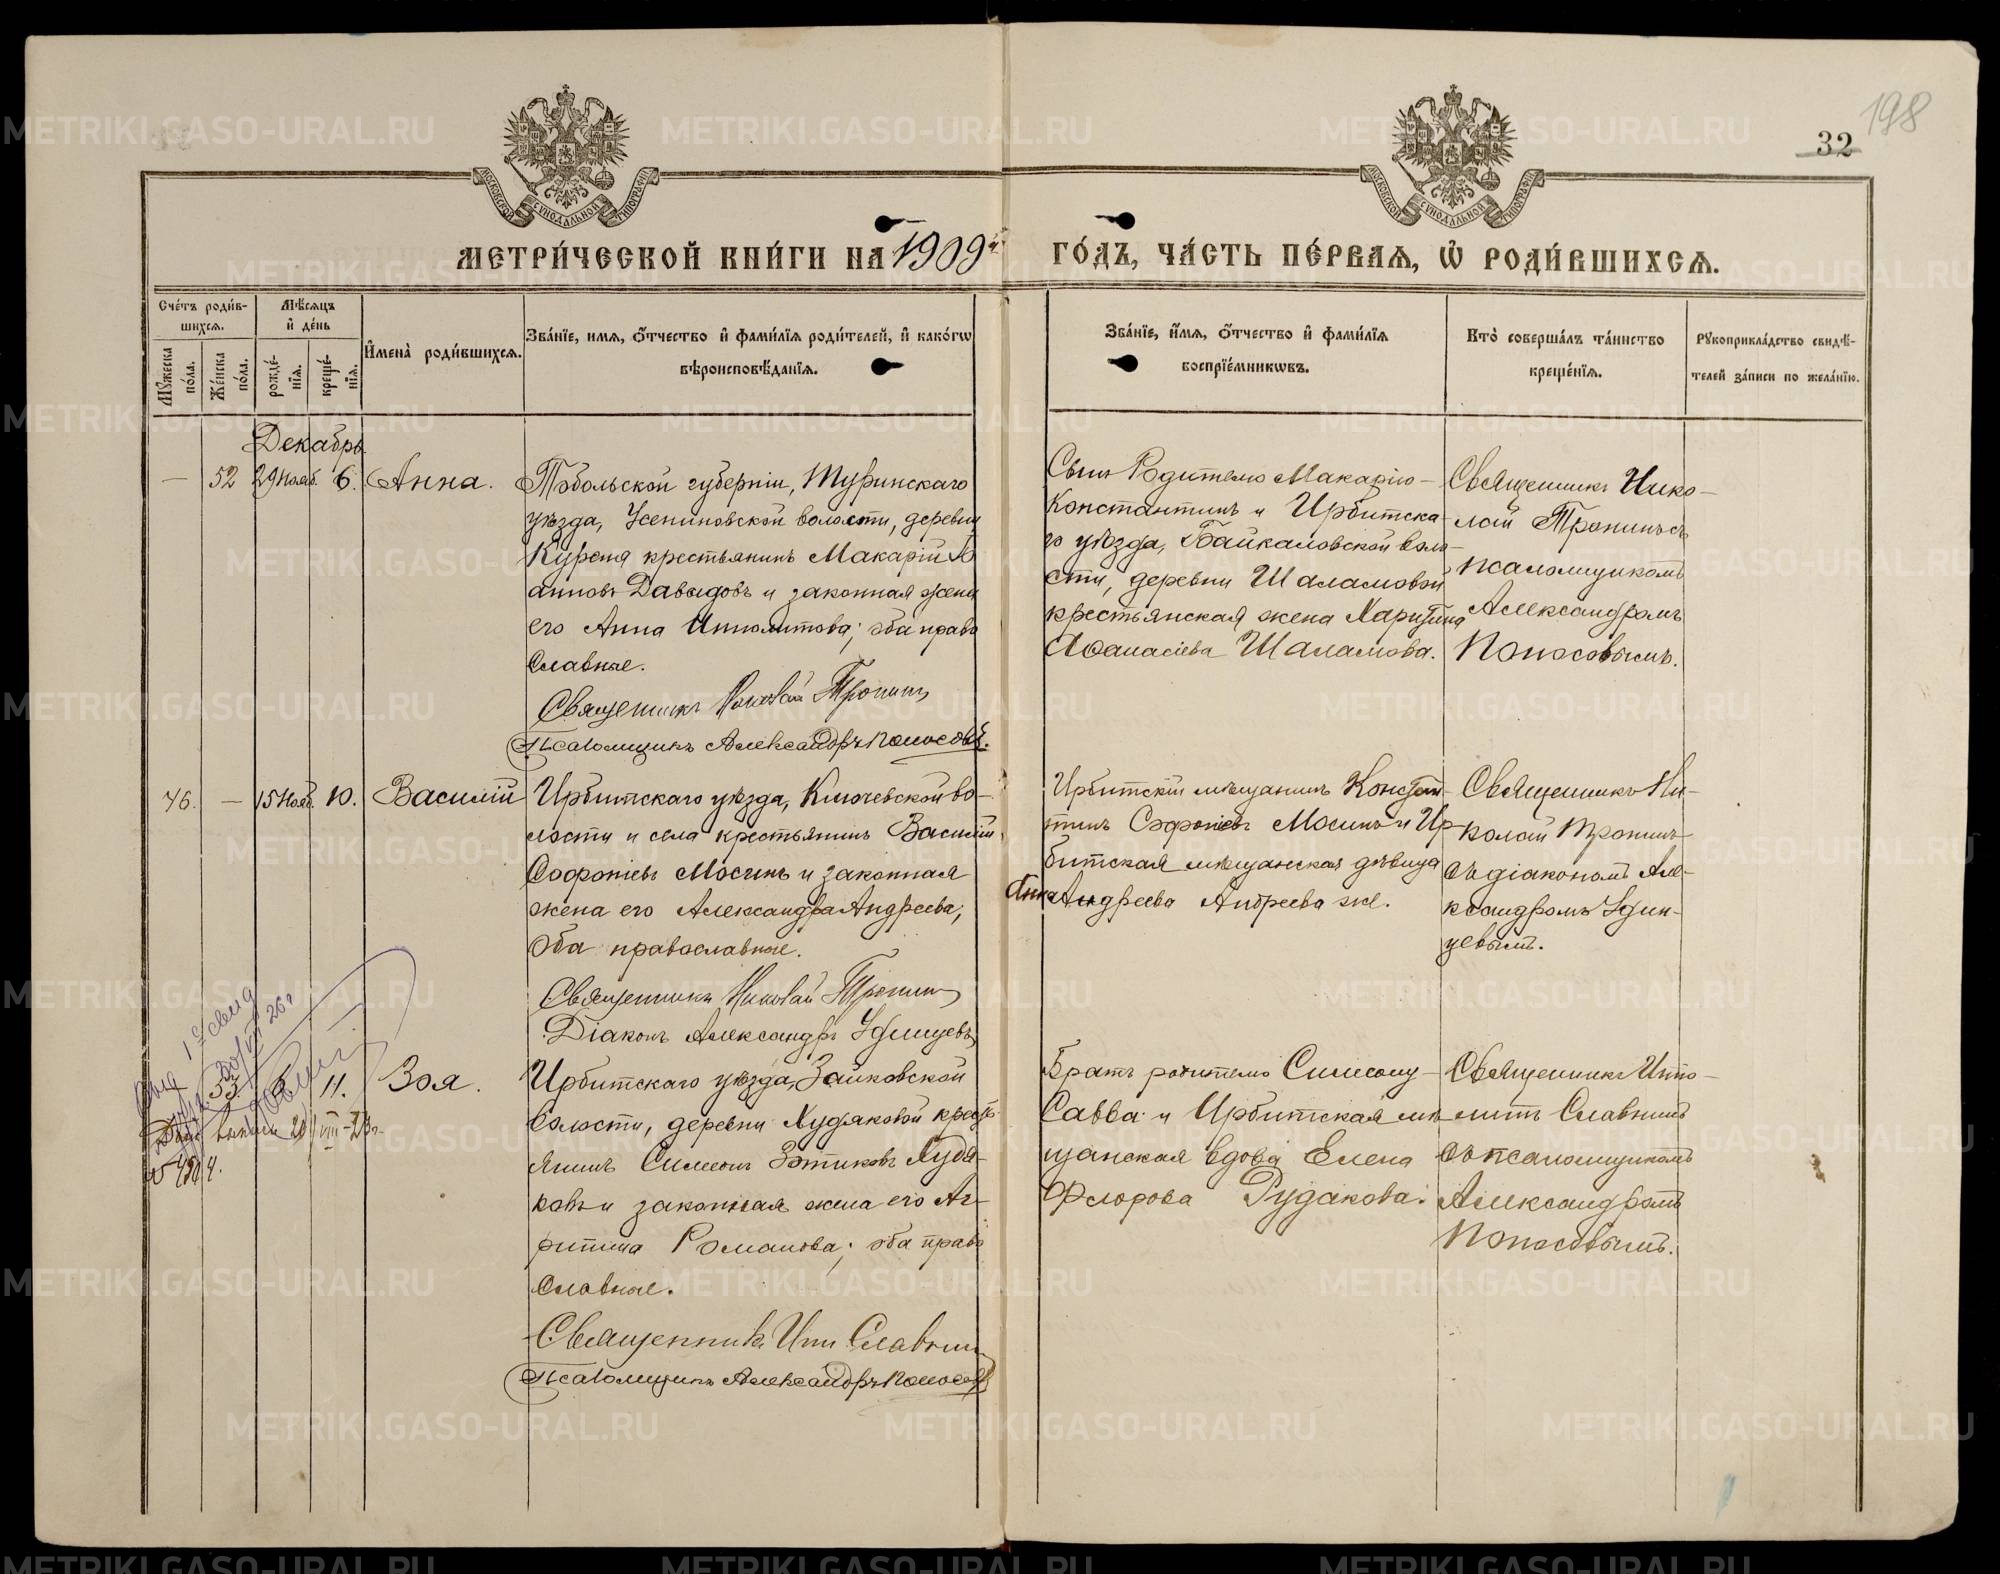 198
32
МОСКОВСКОЙ СУНОДАЛЬНОЙ ТИПОГРАФІИ
МОСКОВСКОЙ СУНОДАЛЬНОЙ ТИПОГРАФІИ
МЕТРИ́ЧЕСКОЙ КНИ́ГИ НА 1909й ГО́ДЪ, ЧА́СТЬ ПЕ́РВАЯ, Ѡ҆ РОДИ́ВШИХСЯ.
Сче́тъ роди́в-
шихся.
Мꙋжеска
по́ла.
Же́нска
по́ла.
Мѣ́сяцъ
и҆ де́нь
рожде́-
нїя.
креще́-
нїя.
И҆мена̀ роди́вшихся.
Зва́нїе, имя, ѻ҆́тчество и҆ фами́лїя роди́телей, и҆ како́гѡ
вѣроисповѣ́данїя.
Зва́нїе, и҆́мя, ѻ҆́тчество и҆ фами́лїя
воспрїе́мникѡвъ.
Кто̀ соверша́лъ та́инство
креще́нїя.
Рꙋкоприкла́дство свидѣ́-
телей за́писи по жела́нїю.
Декабрь
— 52 29 Нояб. 6. Анна.
Тобольской губерніи, Туринскаго
уѣзда, Усениновской волости, деревни
Куреня крестьянинъ Макарій Іо
анновъ Давыдовъ и законная жена
его Анна Ипполитова; оба право
славные.
Священникъ Николай Тропинъ
Псаломщикъ Александръ Попосовъ.
Сынъ Родителю Макарію —
Константинъ и Ирбитска
го уѣзда, Байкаловской воло—
сти, деревни Шаламовой
крестьянская жена Харитина
Аѳанасіева Шаламова.
Священникъ Нико—
лай Тропинъ съ
псаломщикомъ
Александромъ
Попосовымъ.
46. — 15 Нояб. 10. Василій
Ирбитскаго уѣзда, Ключевской во—
лости и села крестьянинъ Василій
Софроніевъ Мосинъ и законная
жена его Александра Андреева;
оба православные.
Священникъ Николай Тропинъ
Діаконъ Александръ Удинцевъ
Ирбитскій мѣщанинъ Констан—
тинъ Софроніевъ Мосинъ и Ир
битская мѣщанская дѣвица
Анна Андреева Андреева же.
Священникъ Ни—
колай Тропинъ
съ діакономъ Але—
ксандромъ Удин—
цевымъ.
53. 6 11. Зоя.
1 свид
26 г
№ 4504.
Ирбитскаго уѣзда, Зайковской
волости, деревни Худяковой крест
янинъ Симеонъ Зотиковъ Худя—
ковъ и законная жена его Аг—
рипина Романова; оба право
славные.
Священникъ Ипп Славнинъ
Псаломщикъ Александръ Попосовъ
Братъ родителю Симеону —
Савва и Ирбитская мѣ
щанская вдова Елена
Флорова Рудакова.
Священникъ Иппо—
литъ Славнинъ
съ псаломщикомъ
Александромъ
Попосовымъ.
METRIKI.GASO-URAL.RU